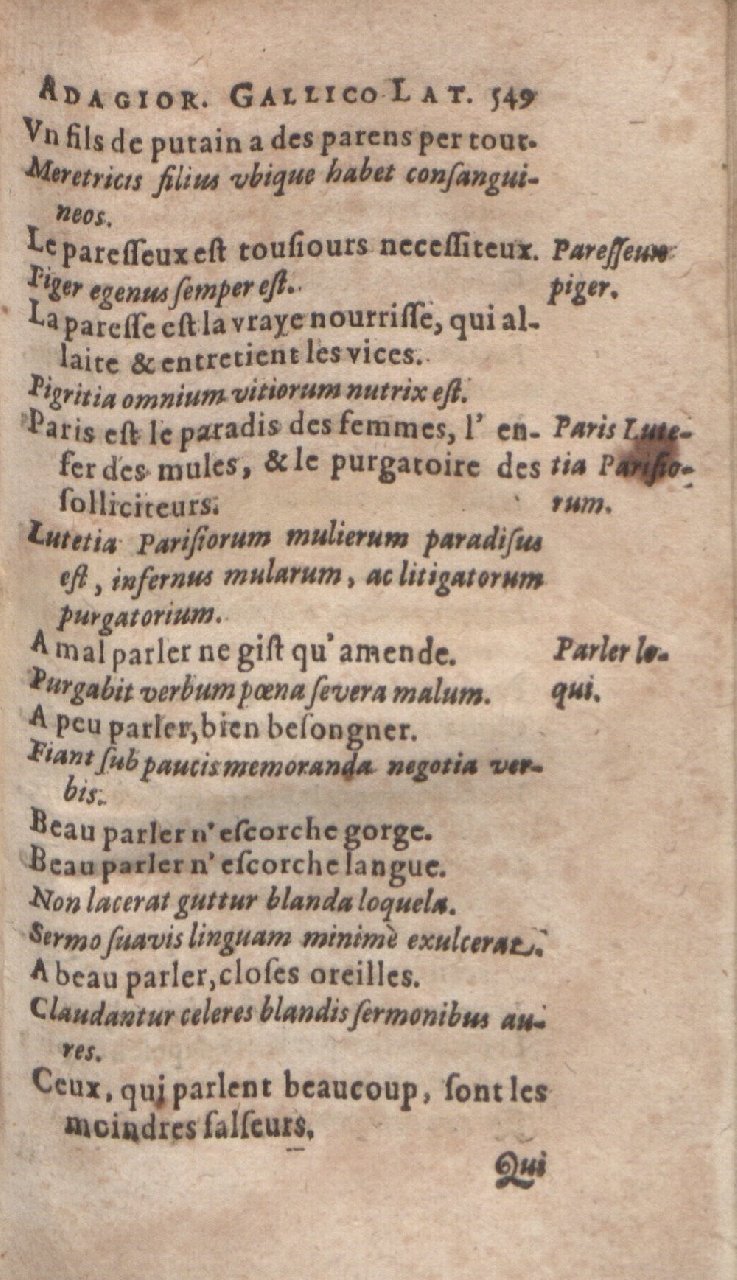 ADAGIOR. GALLICO LAT. 549
Vn fils de putain a des parens per tout.
Meretricis filius vbique habet consangui-
neos.
Le paresseux est tousiours necessiteux. Paresseux
Piger egenus semper est. piger.
La paresse est la vraye nourrisse, qui al-
laite & entretient les vices.
Pigritia omnium vitiorum nutrix est.
Paris est le paradis des femmes, l' en- Paris Lute-
fer des mules, & le purgatoire des tia Parisio-
solliciteurs. rum.
Lutetia Parisiorum mulierum paradisus
est, infernus mularum, ac litigatorum
purgatorium.
A mal parler ne gist qu' amende. Parler lo-
Purgabit verbum pœna severa malum. qui.
A peu parler, bien besongner.
Fiant sub paucis memoranda negotia ver-
bis.
Beau parler n' escorche gorge.
Beau parler n' escorche langue.
Non lacerat guttur blanda loquela.
Sermo suavis linguam minimè exulcerat.
A beau parler, closes oreilles.
Claudantur celeres blandis sermonibus au-
res.
Ceux, qui parlent beaucoup, sont les
moindres falseurs.
Qui